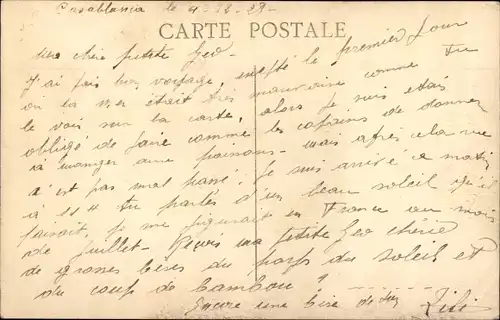 Casablanca le 4-12-29-
CARTE POSTALE
Ma chère petite Geo-
J'ai fais bon voyage, excepté le premier jour
où la mer était très mauvaise comme tu
le vois sur la carte, alors je suis étais
obligé de faire comme les copains de donner
à manger aux poissons- mais après cela ne
s'est pas mal passé. Je suis arrivé ce matin
à 11 H tu parles d'un beau soleil qu'il
faisait, je me figurait en France au mois
de Juillet- Reçois ma petite Geo chérie
de grosses bises du pays du soleil et
du coup de bambou!
encore une bise de ton Lili